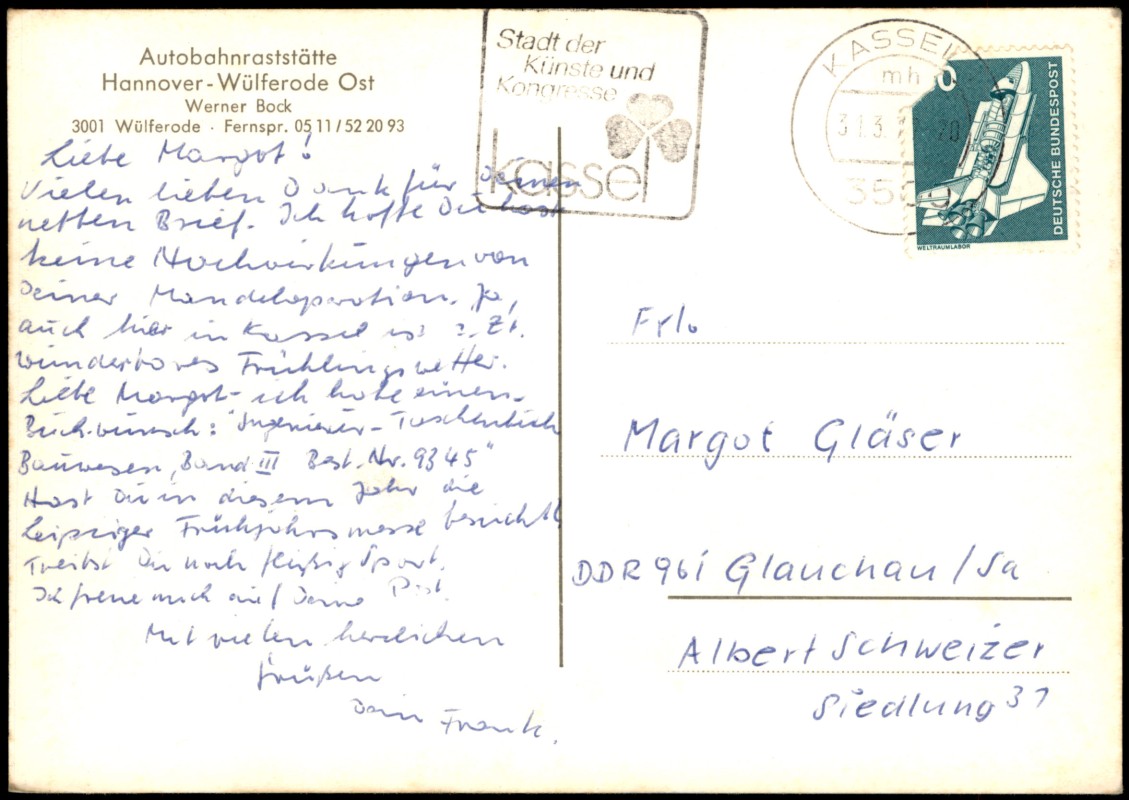 Autobahnraststätte
Hannover-Wülferode Ost
Werner Bock
3001 Wülferode · Fernspr. 05 11/52 20 93
Stadt der
Künste und
Kongresse
kassel
KASSEL
mh
3500
DEUTSCHE BUNDESPOST
WELTRAUMLABOR
Liebe Margot!
Vielen lieben Dank für Deinen
netten Brief. Ich hoffe Du hast
keine Nachwirkungen von
Deiner Mandeloperation. Ja,
auch hier in Kassel ist z. Zt.
wunderbares Frühlingswetter.
Liebe Margot - ich habe einen
Buchwunsch: "Ingenieur-Taschenbuch
Bauwesen, Band III Best. Nr. 9345"
Hast Du in diesem Jahr die
Leipziger Frühjahrsmesse besucht?
Treibst Du noch fleißig Sport.
Ich freue mich auf Deine Post.
Mit vielen herzlichen
Grüßen
Dein Frank.
Frl.
Margot Gläser
DDR 961 Glauchau/Sa
Albert Schweizer
Siedlung 31